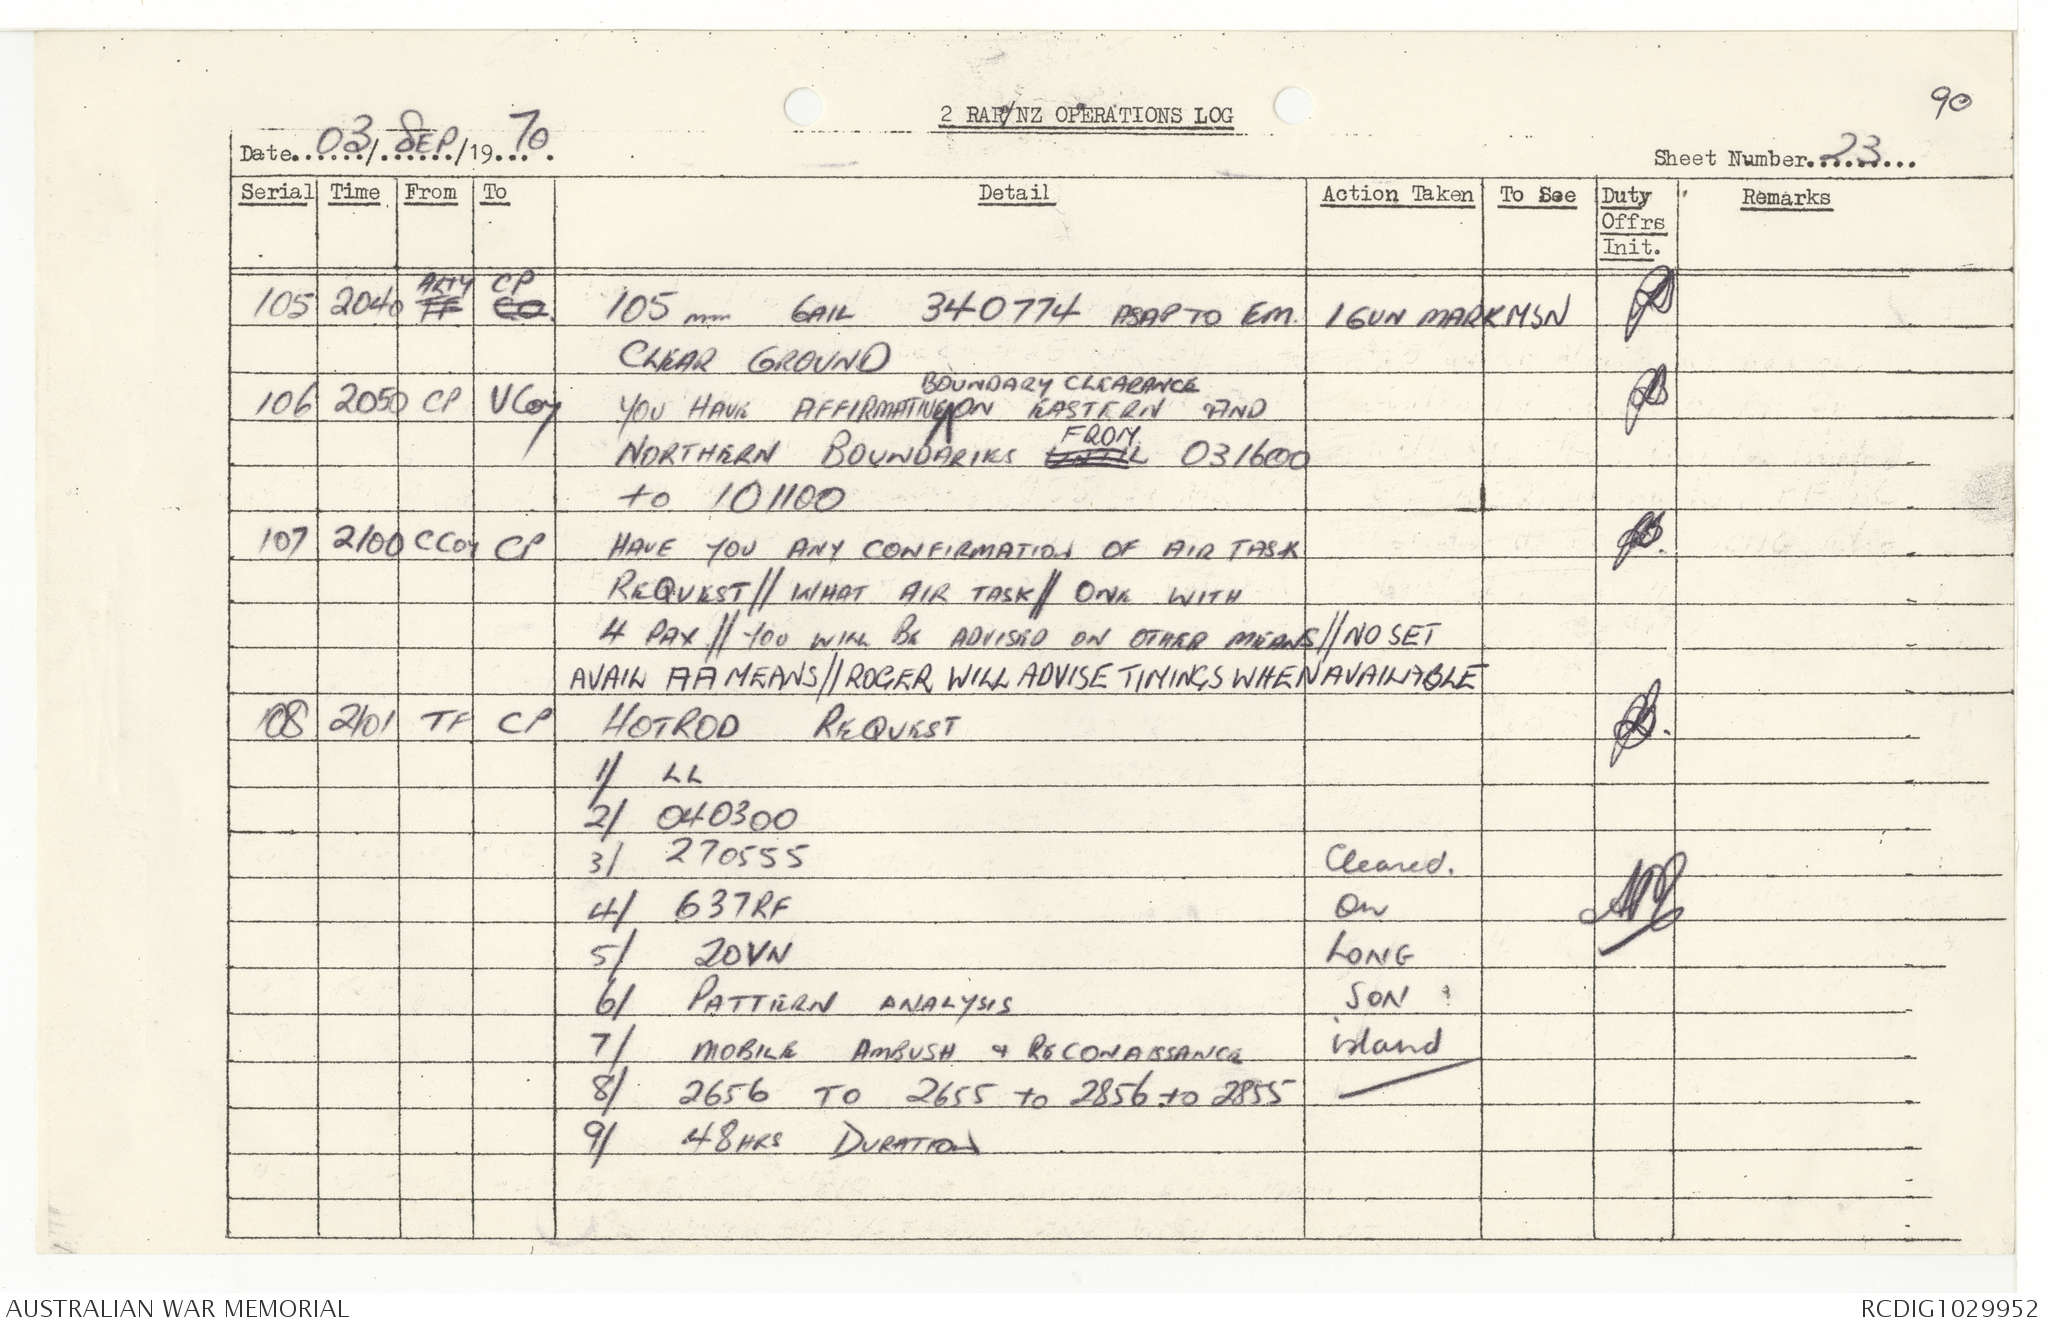 90
2 RAR/NZ OPERATIONS LOG
Date 03/SEP/1970.
Sheet Number 23
Serial Time From To Detail Action Taken To See Duty Offrs Init. Remarks
105 2040 ~~TF~~ ARTY ~~CO.~~ CP 105 mm GAIL 340774 ASAP TO EM. 1 GUN MARK MSN
CLEAR GROUND
106 2050 CP V Coy YOU HAVE AFFIRMATIVE BOUNDARY CLEARANCE ON EASTERN AND
NORTHERN BOUNDARIES ~~UNTIL~~ FROM 031600
to 101100
107 2100 C Coy CP HAVE YOU ANY CONFIRMATION OF AIR TASK
REQUEST // WHAT AIR TASK // ONE WITH
4 PAX // YOU WILL BE ADVISED ON OTHER MEANS // NO SET
AVAIL AA MEANS // ROGER WILL ADVISE TIMINGS WHEN AVAILABLE
108 2101 TF CP HOTROD REQUEST
1/ LL
2/ 040300
3/ 270555 Cleared.
4/ 637RF On
5/ 20VN LONG
6/ PATTERN ANALYSIS SON
7/ MOBILE AMBUSH & RECONAISSANCE island
8/ 2656 TO 2655 to 2856 to 2855
9/ 48HRS DURATION
AUSTRALIAN WAR MEMORIAL RCDIG1029952